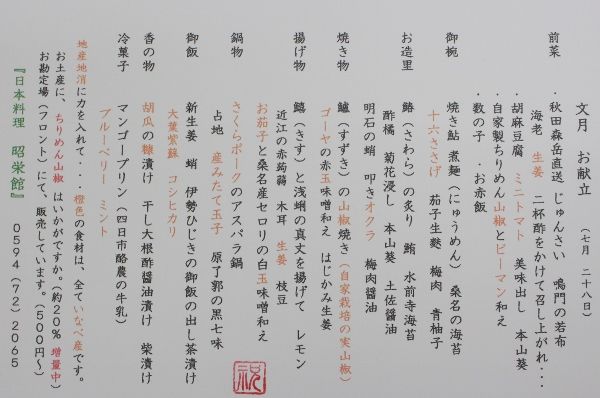 文月　お献立
(七月　二十八日)
前菜　・秋田森岳直送　じゅんさい　鳴門の若布
海老　生姜　二杯酢をかけて召し上がれ・・・
・胡麻豆腐　ミニトマト　美味出し　本山葵
・自家製ちりめん山椒とピーマン和え
・数の子　・お赤飯
御椀　焼き鮎　煮麺(にゅうめん)　桑名の海苔
十六ささげ　茄子生麩　梅肉　青柚子
お造里　鰆(さわら)の炙り　鮪　水前寺海苔
酢橘　菊花浸し　本山葵　土佐醤油
明石の蛸　叩きオクラ　梅肉醤油
焼き物　鱸(すずき)の山椒焼き(自家栽培の実山椒)
ゴーヤの赤玉味噌和え　はじかみ生姜
揚げ物　鱚(きす)と浅蜊の真丈を揚げて　レモン
近江の赤蒟蒻　木耳　生姜　枝豆
お茄子と桑名産セロリの白玉味噌和え
鍋物　さくらポークのアスパラ鍋
占地　産みたて玉子　原了郭の黒七味
御飯　新生姜　蛸　伊勢ひじきの御飯の出し茶漬け
大葉紫蘇　コシヒカリ
香の物　胡瓜の糠漬け　干し大根酢醤油漬け　柴漬け
冷菓子　マンゴープリン(四日市酪農の牛乳)
ブルーベリー　ミント
地産地消に力を入れて・・・橙色の食材は、全ていなべ産です。
お土産に、ちりめん山椒はいかがですか。(約20％増量中)
お勘定場(フロント)にて、販売しています。(500円〜)
『日本料理　昭栄館』　0594(72)2065
祝